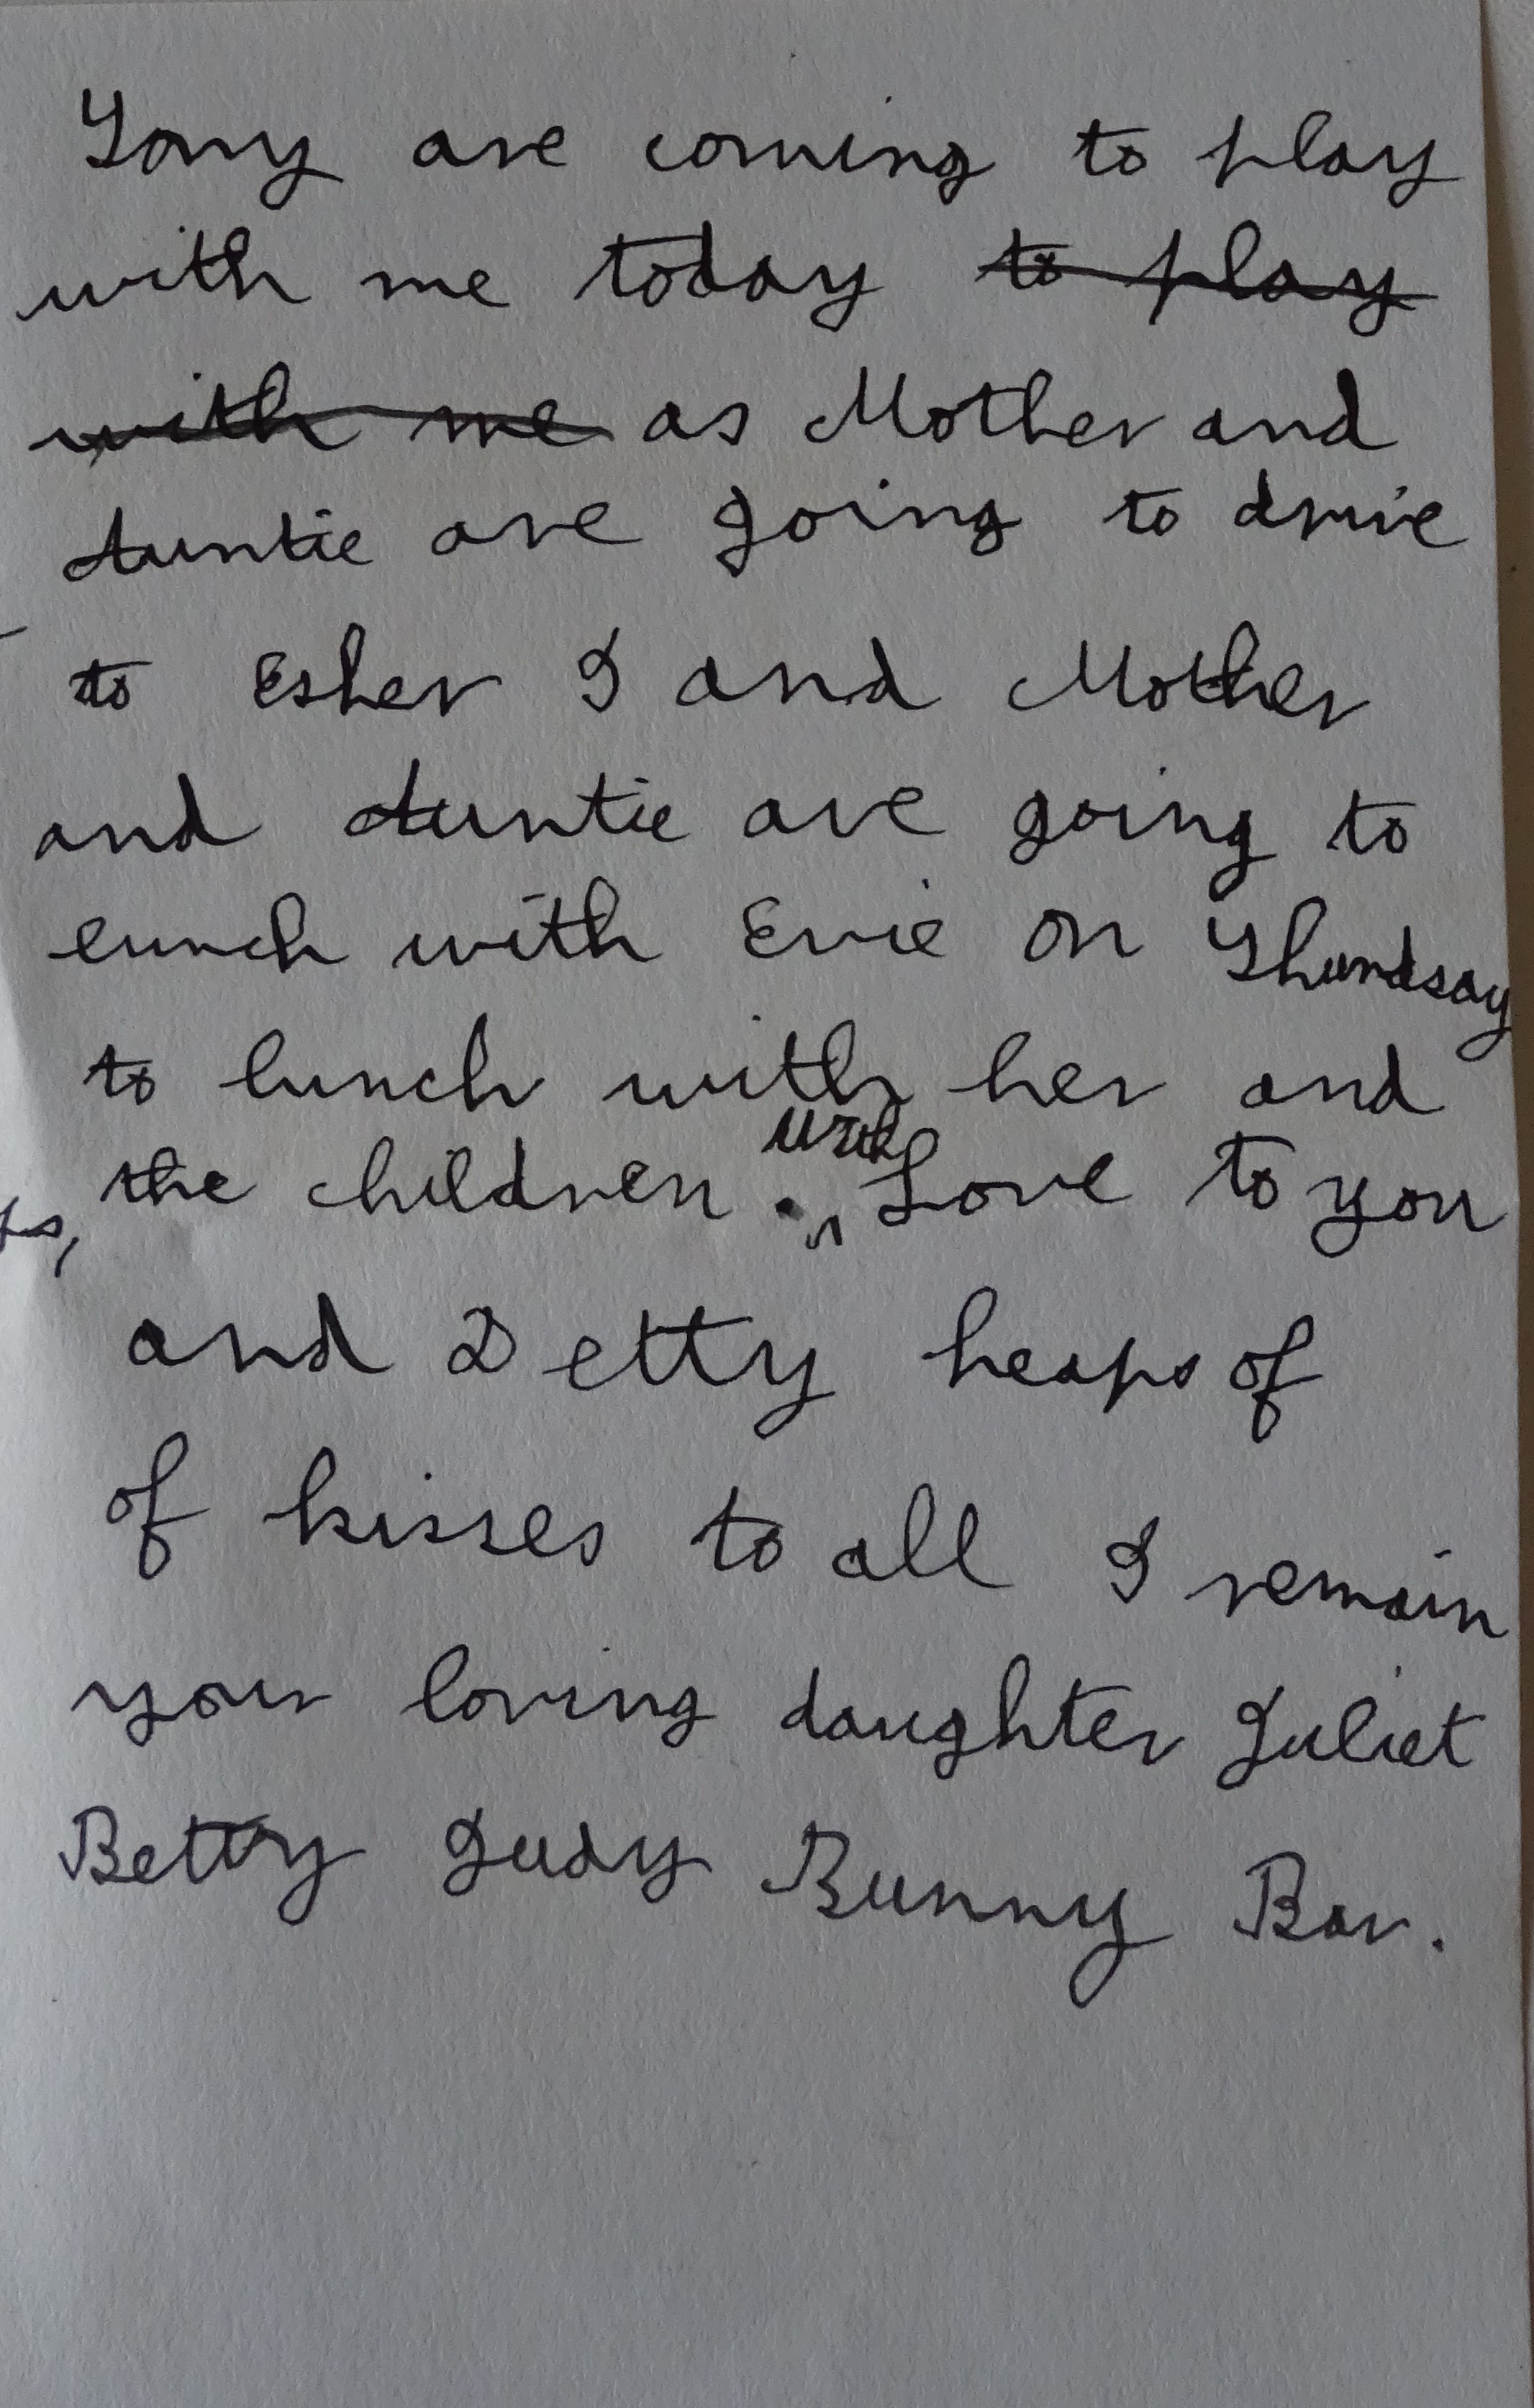 Tony are coming to play
with me today ~~to play~~
~~with me~~ as Mother and
Auntie are going to drive
to Esher I and Mother
and Auntie are going to
lunch with Evie on Thurdsay
to lunch with her and
with
the children . Love to you
and Detty heaps of
of kisses to all I remain
your loving daughter Juliet
Betty Judy Bunny Bar.